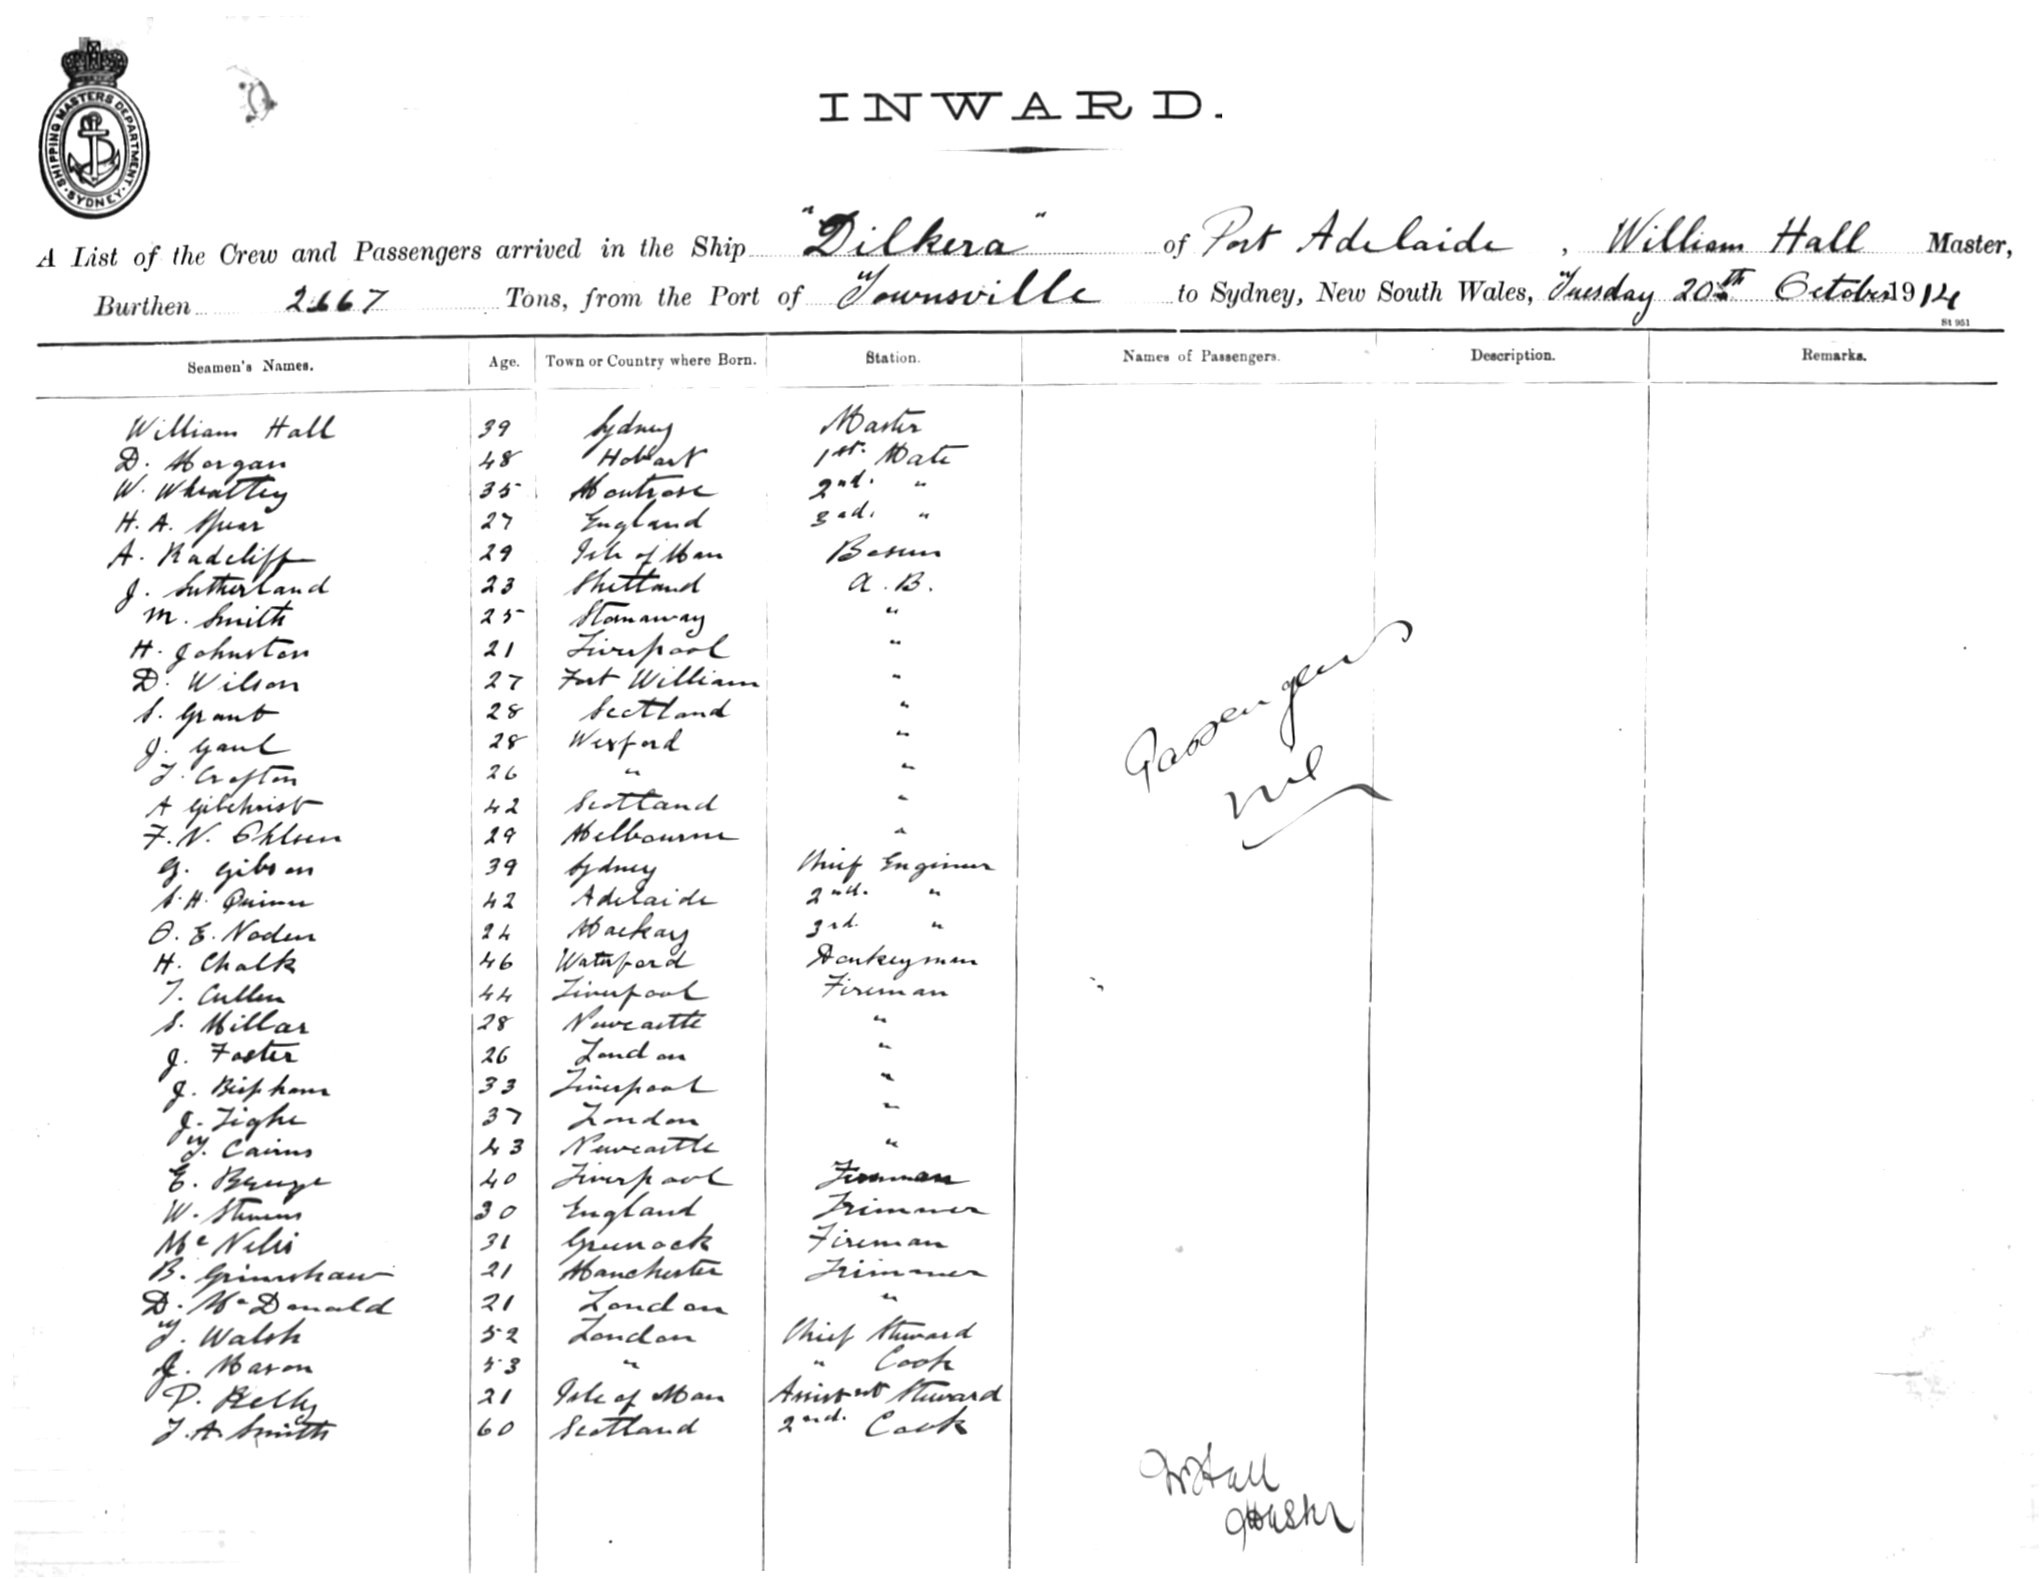 SHIPPING MASTERS DEPARTMENT. SYDNEY.
INWARD.
A List of the Crew and Passengers arrived in the Ship "Dilkera" of Port Adelaide, William Hall Master,
Burthen 2667 Tons, from the Port of Townsville to Sydney, New South Wales, Tuesday 20th October 1914
St 951
Seamen's Names. Age. Town or Country where Born. Station. Names of Passengers. Description. Remarks.
William Hall 39 Sydney Master
D. Morgan 48 Hobart 1st. Mate
W. Wheatley 35 Montrose 2nd. "
H. A. Spear 27 England 3rd. "
A. Radcliff 29 Isle of Man Bosun
J. Sutherland 23 Shetland A.B.
M. Smith 25 Stornaway "
H. Johnston 21 Liverpool "
D. Wilson 27 Fort William "
S. Grant 28 Scotland "
J. Gaul 28 Wexford "
J. Crofton 26 " "
A Gilchrist 42 Scotland "
F. N. Ohlsen 29 Melbourne "
G. Gibson 39 Sydney Chief Engineer
S. H. Quinn 42 Adelaide 2nd. "
O. E. Noden 24 Mackay 3rd. "
H. Chalk 46 Waterford Donkeyman
T. Cullen 44 Liverpool Fireman
S. Millar 28 Newcastle "
J. Foster 26 London "
J. Bispham 33 Liverpool "
J. Tighe 37 London "
T. Cairns 43 Newcastle "
E. 40 Liverpool Fireman
W. Stevens 30 England Trimmer
McNelis 31 Greenock Fireman
B. Grimshaw 21 Manchester Trimmer
D. McDonald 21 London "
T. Walsh 52 London Chief Steward
J. Mason 53 " " Cook
P. Kelly 21 Isle of Man Assistant Steward
J. A. Smith 60 Scotland 2nd. Cook
Passengers
nil
W Hall
Master